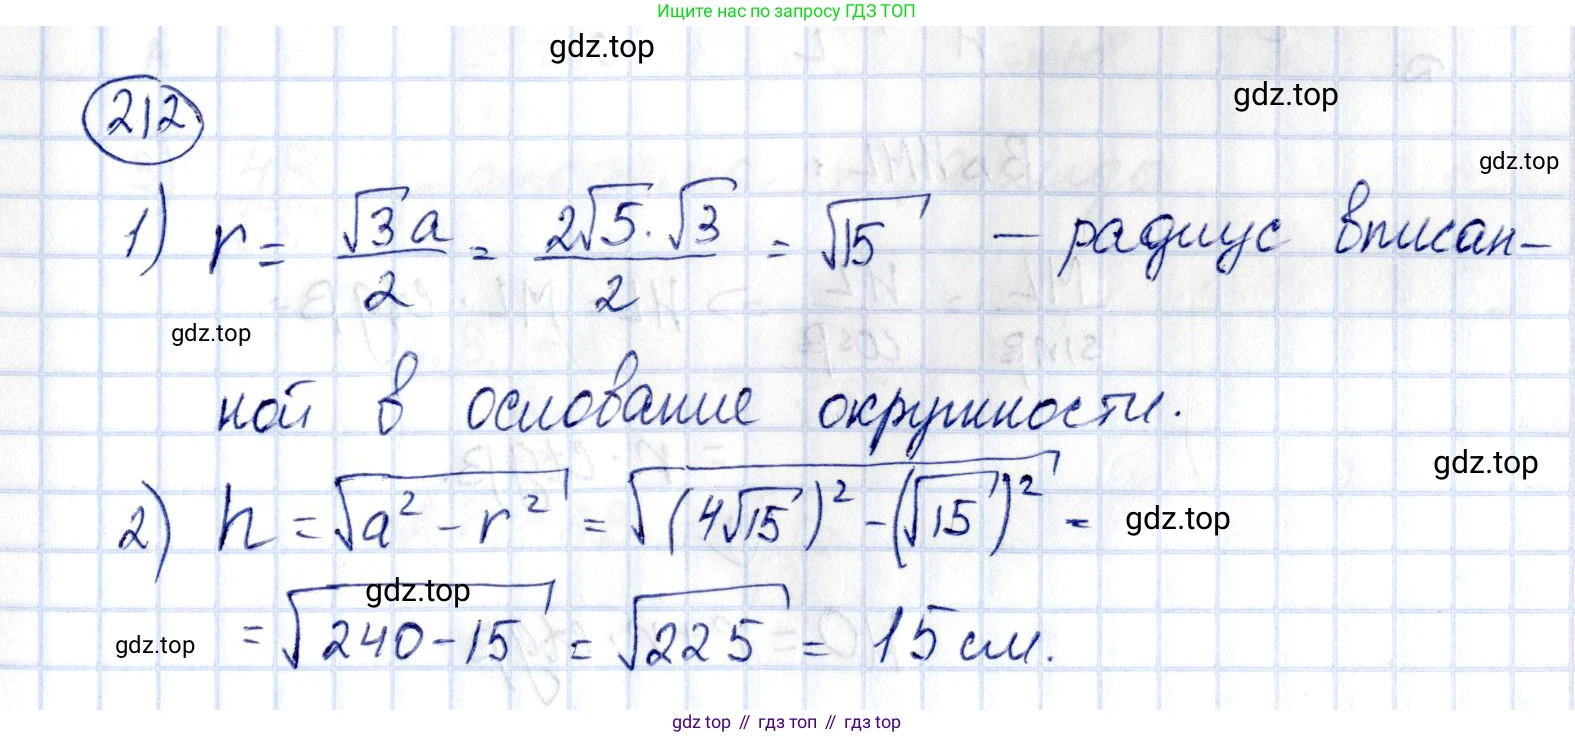 Ищите нас по запросу ГДЗ ТОП
gdz.top
gdz.top
212
gdz.top
1) r = √3a/2 = 2√5·√3/2 = √15 — радиус вписан-
gdz.top
ной в основание окружности.
gdz.top
2) h = √(a² - r²) = √((4√15)² - (√15)²) =
gdz.top
gdz.top
= √(240-15) = √225 = 15 см.
gdz.top
gdz top // гдз топ // гдз top